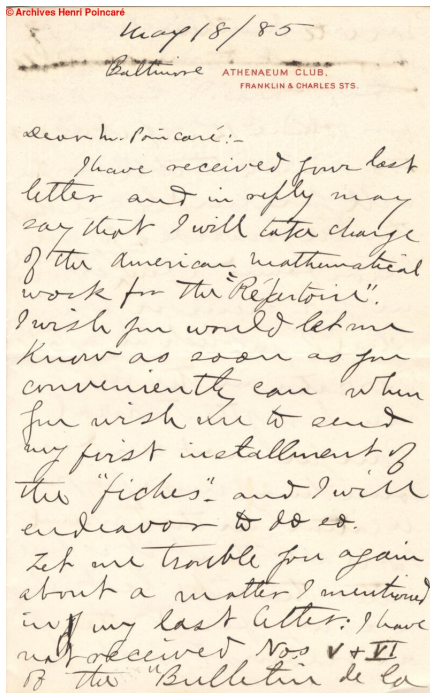 © Archives Henri Poincaré
May 18/85
Baltimore
ATHENAEUM CLUB,
FRANKLIN & CHARLES STS.
Dear Mr. Poincaré:-
I have received your last
letter and in reply may
say that I will take charge
of the American mathematical
work for the "Répertoire".
I wish you would let me
know as soon as you
conveniently can when
you wish me to send
my first installment of
the "fiches" and I will
endeavor to do so.
Let me trouble you again
about a matter I mentioned
in my last letter: I have
not received Nos V & VI
of the "Bulletin de la